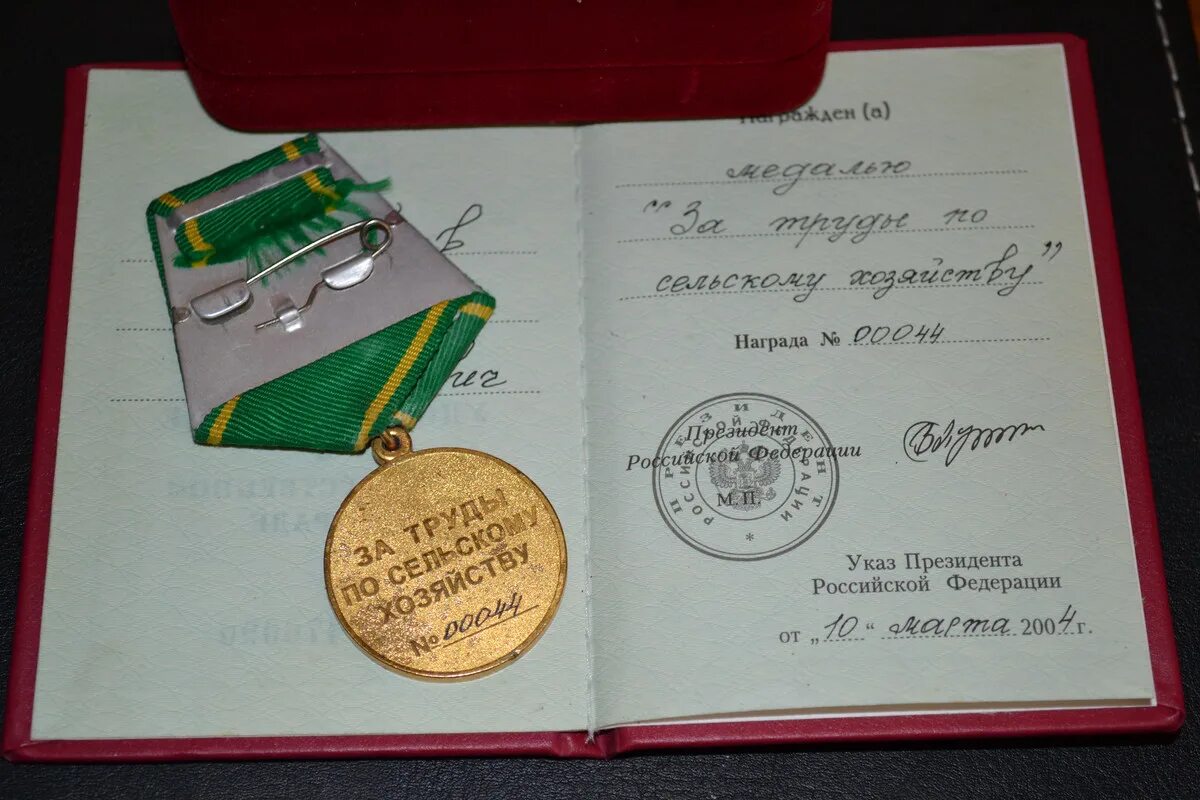 в
ич
ЗА ТРУДЫ
ПО СЕЛЬСКОМУ
ХОЗЯЙСТВУ
№ 00044
Награжден (а)
медалью
"За труды по
сельскому хозяйству"
Награда № 00044
ПРЕЗИДЕНТ
РОССИЙСКОЙ ФЕДЕРАЦИИ
Президент
Российской Федерации
М.П.
Указ Президента
Российской Федерации
от „10“ марта 2004 г.